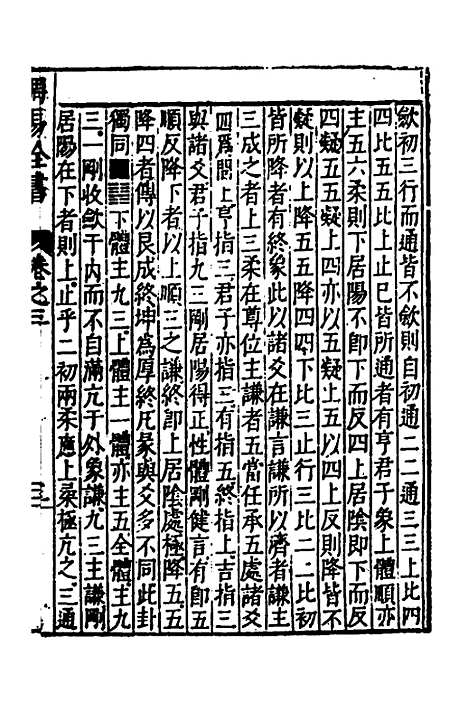 歛初三行而通皆不歛則自初通二二通三三上比四
四比五五比上止巳皆所通者有亨君于象上體順亦
主五六柔則下居陽不卽下而反四上居陰即下而反
四疑五五疑上四亦以五疑上五以四上反則降皆不
疑則以上降五五降四四下比三止行三比二二比初
皆所降者有終象此以諸爻在謙言謙所以濟者謙主
三成之者上三柔在尊位主謙者五當任承五處諸爻
四爲間上亨指三君子亦指三有指五終指上吉指三
與諸爻君子指九三剛居陽得正性體剛健言有卽五
順反降下者以上順三之謙終卽上居陰處極降五五
降四者傳以艮成終坤爲厚終凡彖與爻多不同此卦
獨同下體主九三上體主一體亦主五全體主九
三一剛收歛于內而不自滿亢于外象謙九三主謙剛
居陽在下者則上止乎二初兩柔應上柔極亢之三通
易全書
卷之三
三